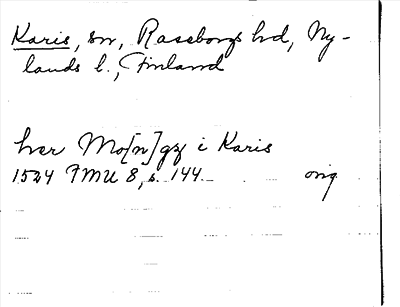 Karis, sn, Raseborgs hd, Ny-
lands l., Finland
her Mo[n]gz i Karis
1524 FMU 8, s. 144. orig